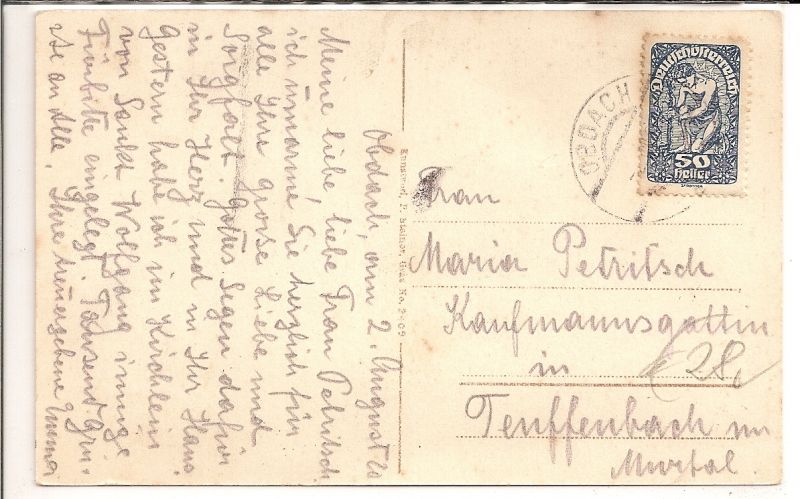 Obdach, am 2. August 20
Meine liebe, liebe Frau Petritsch
ich umarme Sie herzlich für
alle Ihre große Liebe und
Sorgfalt. Gottes Segen dafür
in Ihr Herz und in Ihr Haus
Gestern habe ich im Kirchlein
von Sankt Wolfgang innige
Fürbitte eingelegt. Tausend Grü-
sse an Alle, Ihre treuergebene Emma
No. 9-09
Deutschösterreich
50
Heller
OBDACH
Frau
Maria Petritsch
Kaufmannsgattin
in
28,
Teuffenbach im
Murtal.